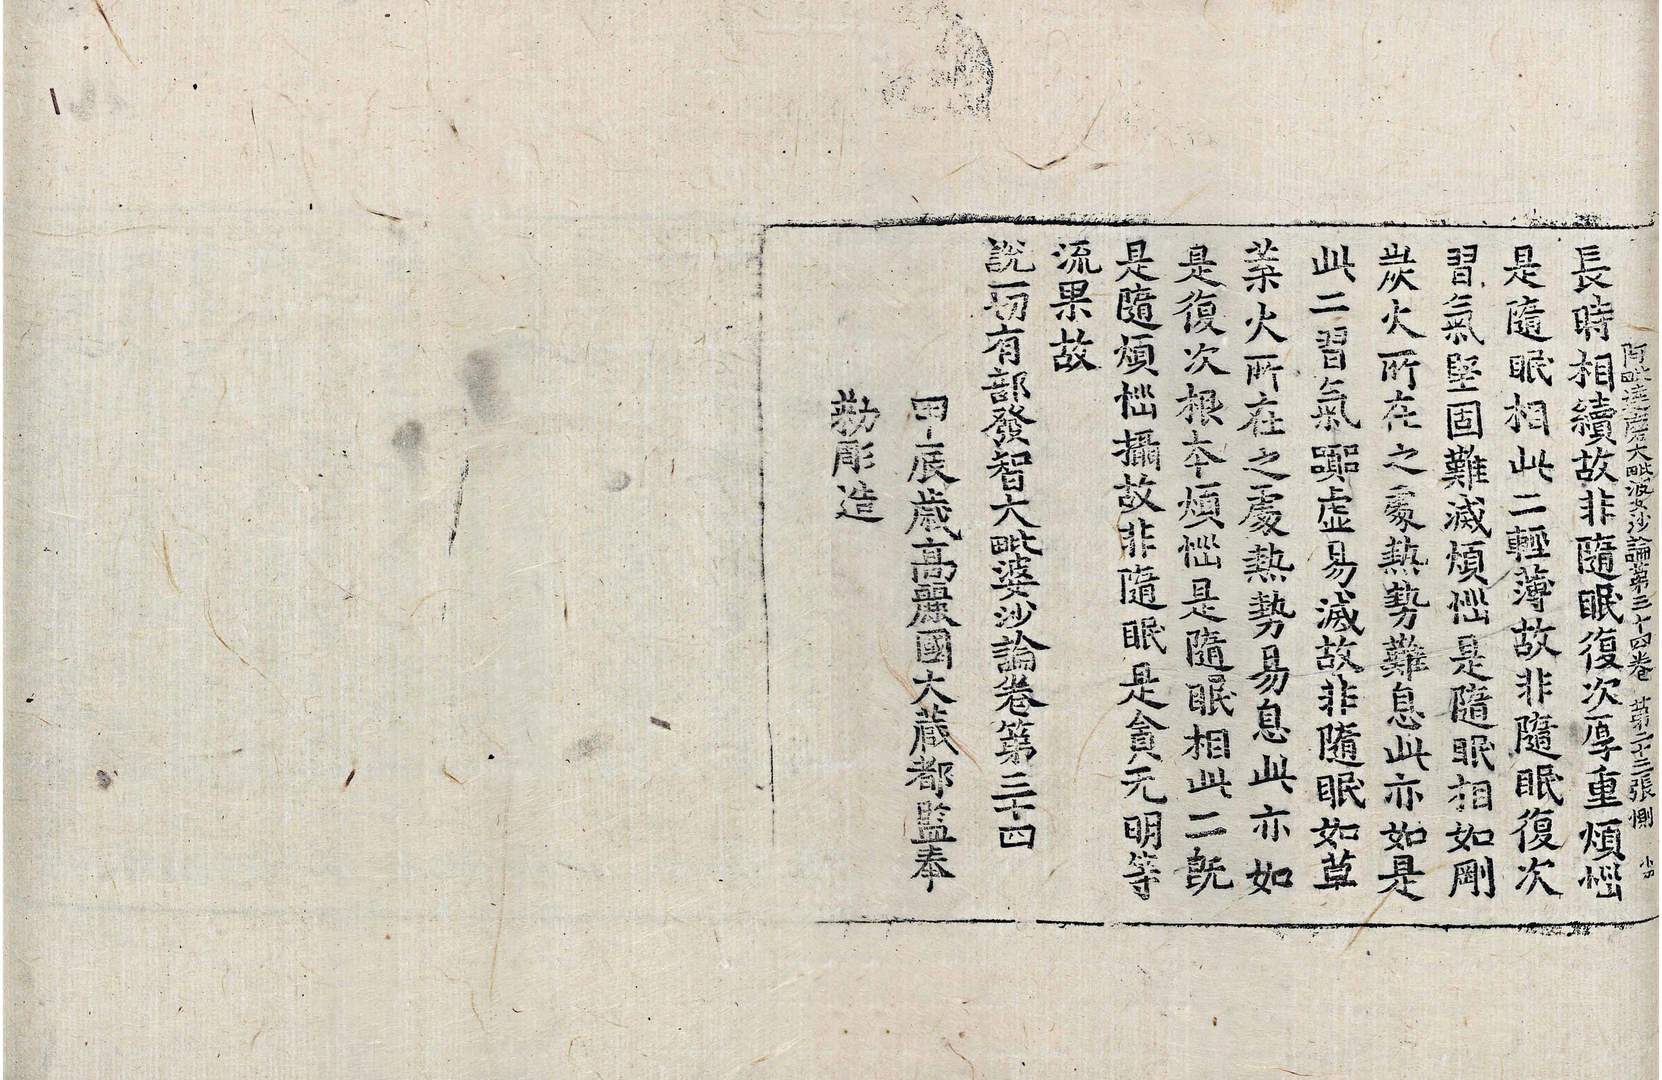 阿毗達磨大毗婆沙論第三十四卷 第二十三張 側
長時相續故非隨眠復次厚重煩惱
是隨眠相此二輕薄故非隨眠復次
習氣堅固難滅煩惱是隨眠相如剛
炭火所在之處熱勢難息此亦如是
此二習氣嚚虛易滅故非隨眠如草
葉火所在之處熱勢易息此亦如
是復次根本煩惱是隨眠相此二旣
是隨煩惱攝故非隨眠是貪无明等
流果故
說一切有部發智大毗婆沙論卷第三十四
甲辰歲高麗國大藏都監奉
勅彫造